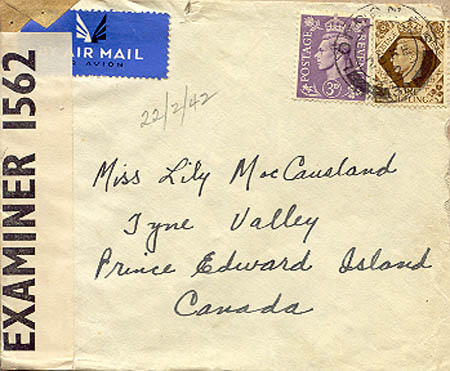 EXAMINER 1562
BY AIR MAIL
PAR AVION
POSTAGE
REVENUE
3D
22/2/42
Miss Lily MacCausland
Tyne Valley
Prince Edward Island
Canada